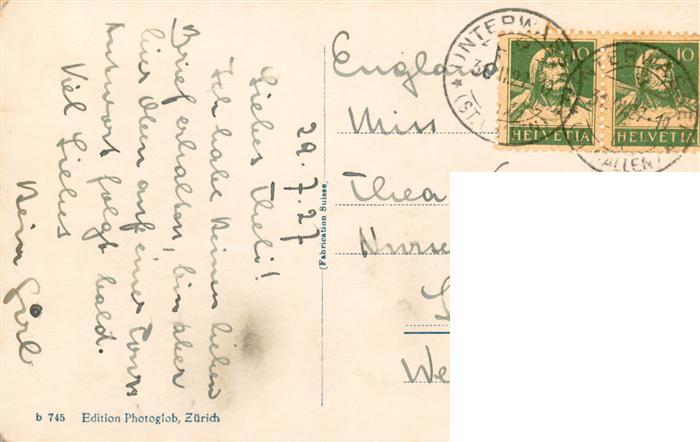 29.7.27
Liebes Theli!
Ich habe Deinen lieben
Brief erhalten, bin aber
hier oben auf einer Tour.
Antwort folgt bald.
Viel Liebes
Dein
England
Miss
Thea
Nurse
We
(Fabrication Suisse)
10
10
HELVETIA
HELVETIA
b 745 Edition Photoglob, Zürich